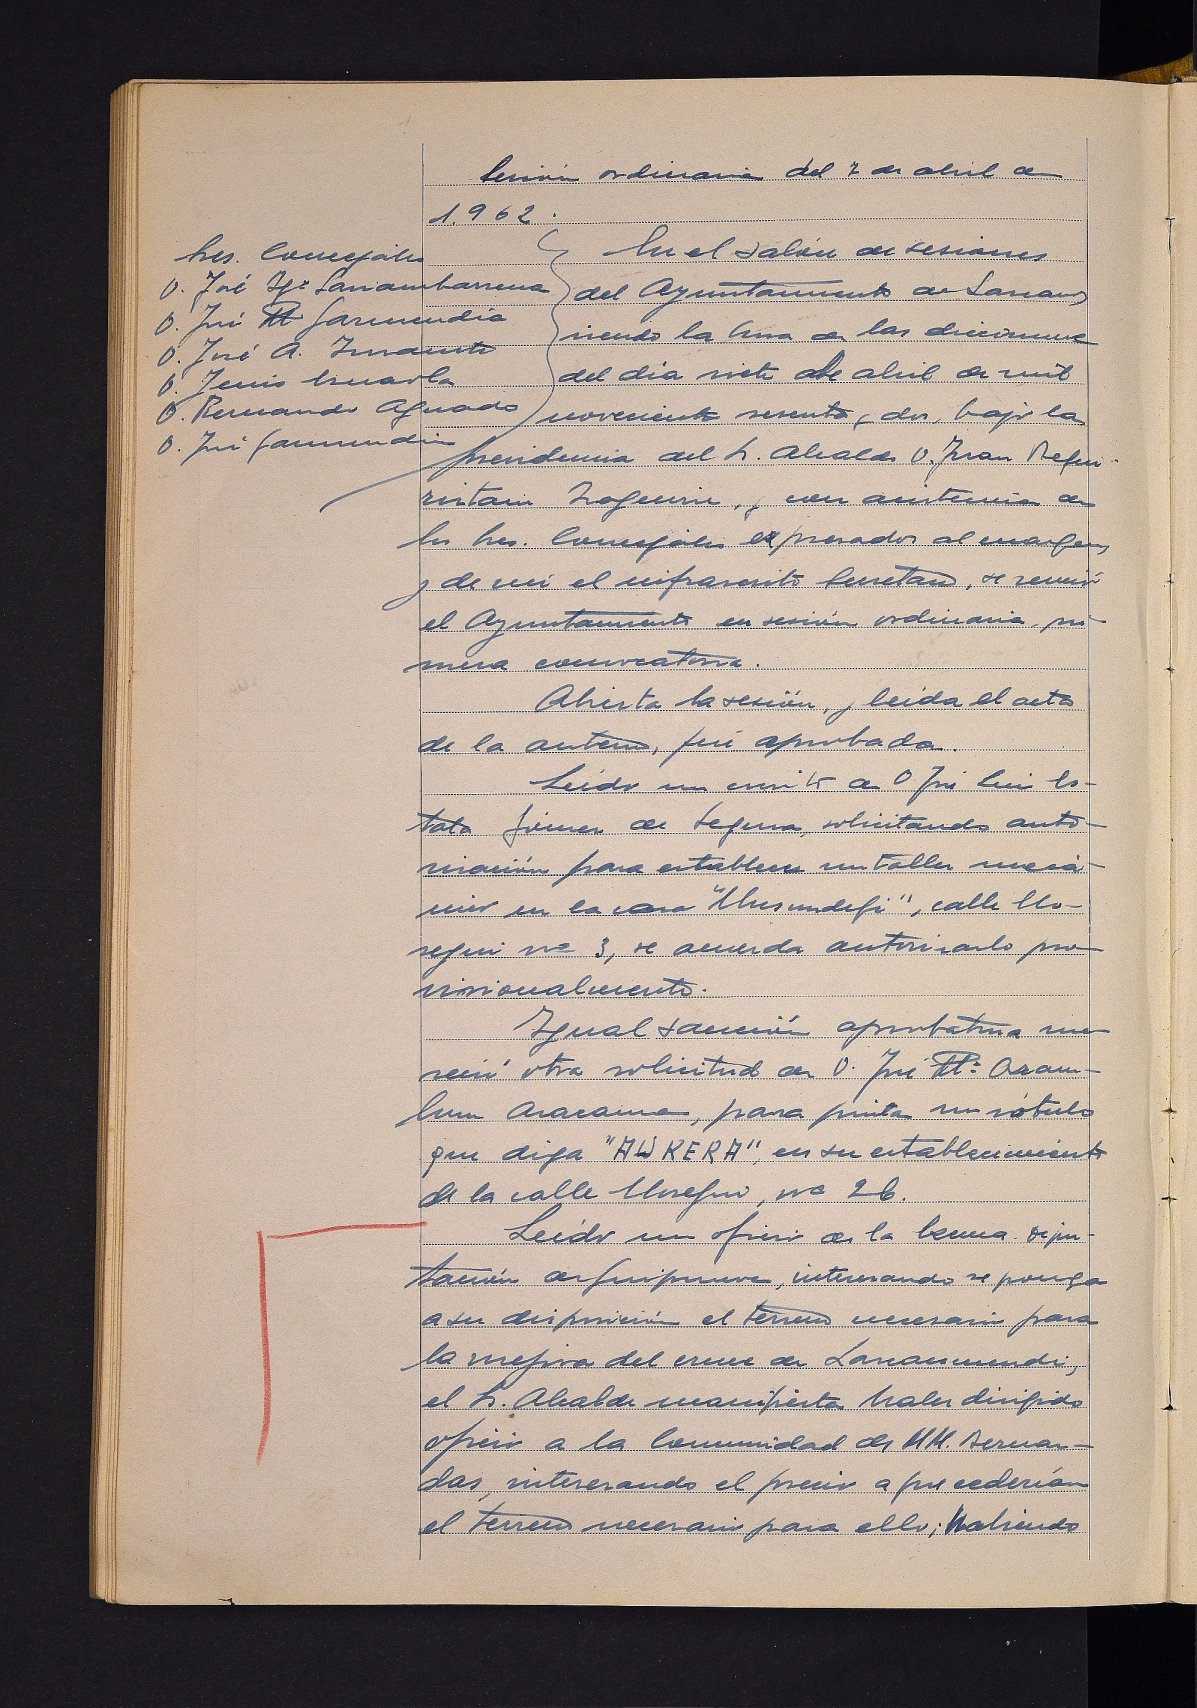 Sesión ordinaria del 7 de abril de
1.962.
Srs. Concejales
D. José Igº Larrambarrena
D. José Mª Garmendia
D. José A. Insausti
D. Jesús
D. Bernando Aguado
D. José Garmendia
En el salón de sesiones
del Ayuntamiento de Lazcano,
siendo la hora de las diecinueve
del día siete de abril de mil
novecientos sesenta y dos, bajo la
presidencia del Sr. Alcalde D. Juan Regui-
ristain Iraguirre, y con asistencia de
los Srs. Concejales expresados al margen,
y de mi el infrascrito Secretario, se reunió
el Ayuntamiento en sesión ordinaria, pri-
mera convocatoria.
Abierta la sesión, y leída el acta
de la anterior, fué aprobada.
Leído un escrito de D José Luis Es-
tala Jimenez de Segura, solicitando auto-
rización para establecer un taller mecá-
nico en la casa "Urkundegi", calle Elo-
segui nº 3, se acuerda autorizarlo pro-
visionalmente.
Igual sanción aprobatoria me-
reció otra solicitud de D. José Mª Aram-
buru Aracama, para pintar un rótulo
que diga "AUKERA", en su establecimiento
de la calle Elosegui, nº 26.
Leído un oficio de la Excma. Dipu-
tación de Guipúzcoa, interesando se ponga
a su disposición el terreno necesario para
la mejora del cruce de Lazcaomendi,
el Sr. Alcalde manifiesta haber dirigido
oficio a la Comunidad de MM. Bernar-
das, interesando el precio a que cederían
el terreno necesario para ello; habiendo